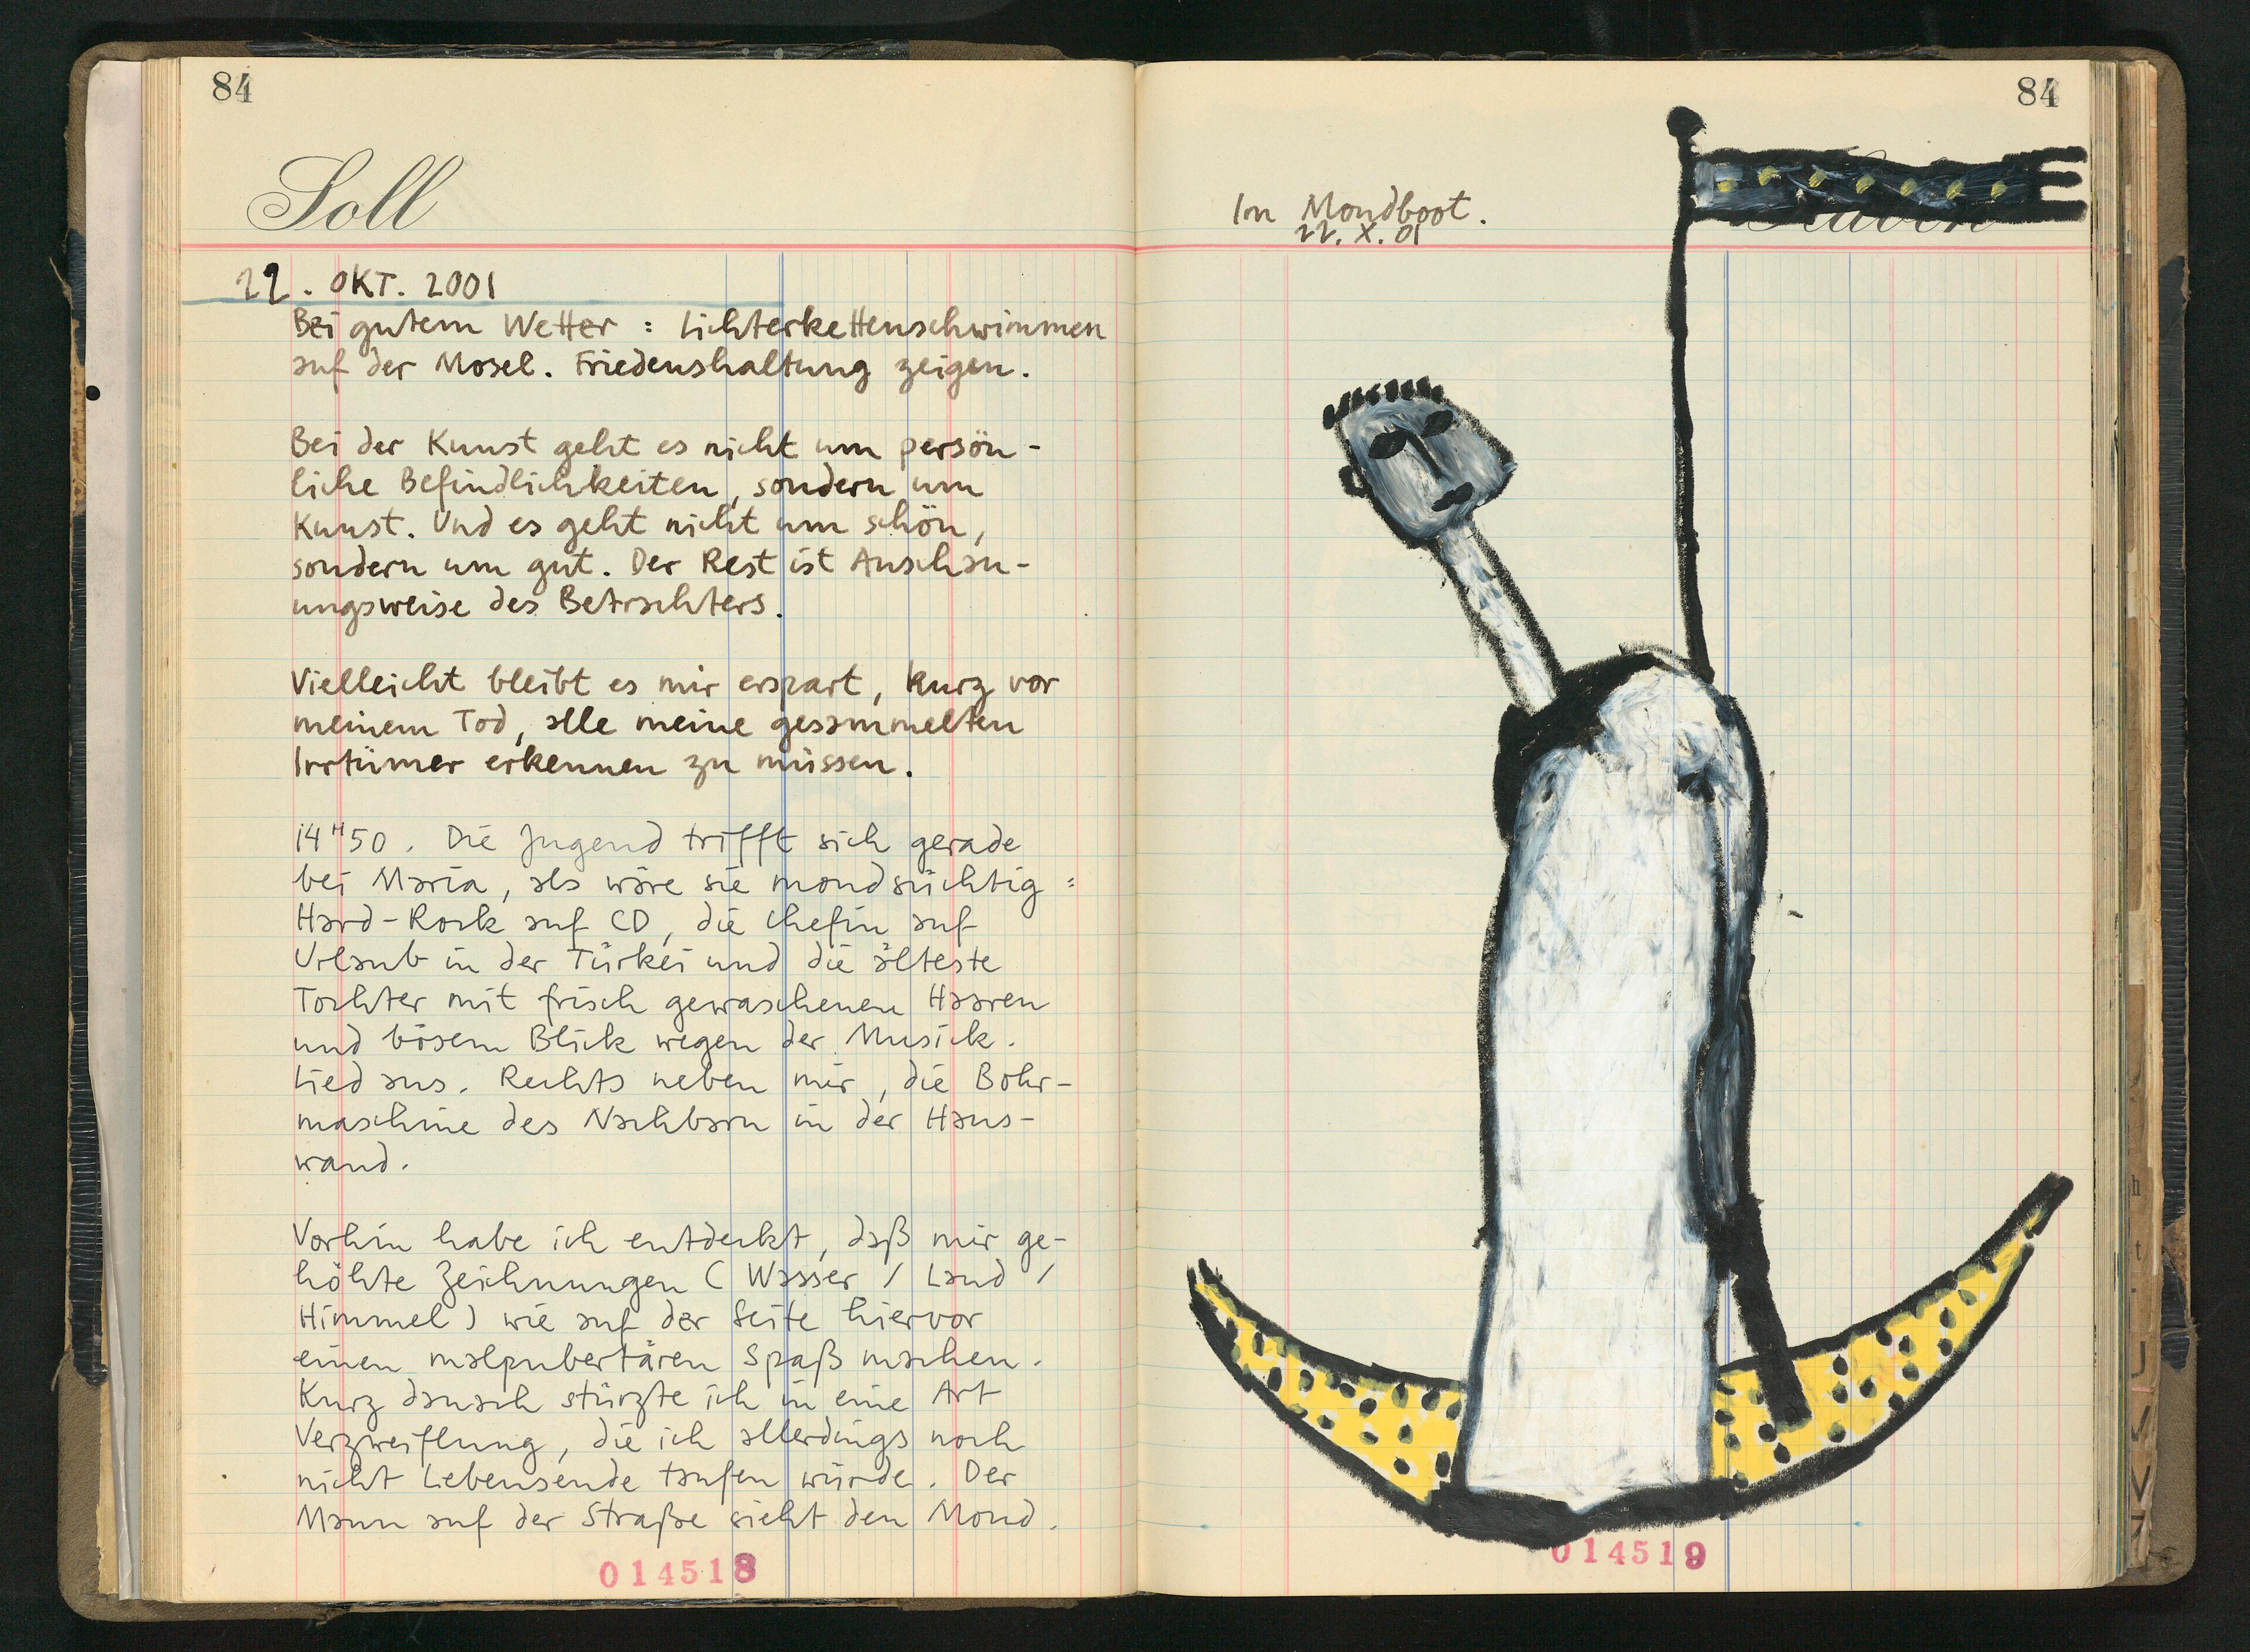 84
Soll
22. OKT. 2001
Bei gutem Wetter : Lichterkettenschwimmen
auf der Mosel. Friedenshaltung zeigen.
Bei der Kunst geht es nicht um persön-
liche Befindlichkeiten, sondern um
Kunst. Und es geht nicht um schön,
sondern um gut. Der Rest ist Anschau-
ungsweise des Betrachters.
Vielleicht bleibt es mir erspart, kurz vor
meinem Tod, alle meine gesammelten
Irrtümer erkennen zu müssen.
14H50. Die Jugend trifft sich gerade
bei Maria, als wäre sie mondsüchtig :
Hard-Rock auf CD, die Chefin auf
Urlaub in der Türkei und die älteste
Tochter mit frisch gewaschenen Haaren
und bösem Blick wegen der Musick.
Lied aus. Rechts neben mir, die Bohr-
maschine des Nachbarn in der Haus-
wand.
Vorhin habe ich entdeckt, daß mir ge-
höhte Zeichnungen ( Wasser / Land /
Himmel ) wie auf der Seite hiervor
einen malpubertären Spaß machen.
Kurz danach stürzte ich in eine Art
Verzweiflung, die ich allerdings noch
nicht Lebensende taufen würde. Der
Mann auf der Straße sieht den Mond.
014518
84
Im Mondboot.
22. X. 01
014519